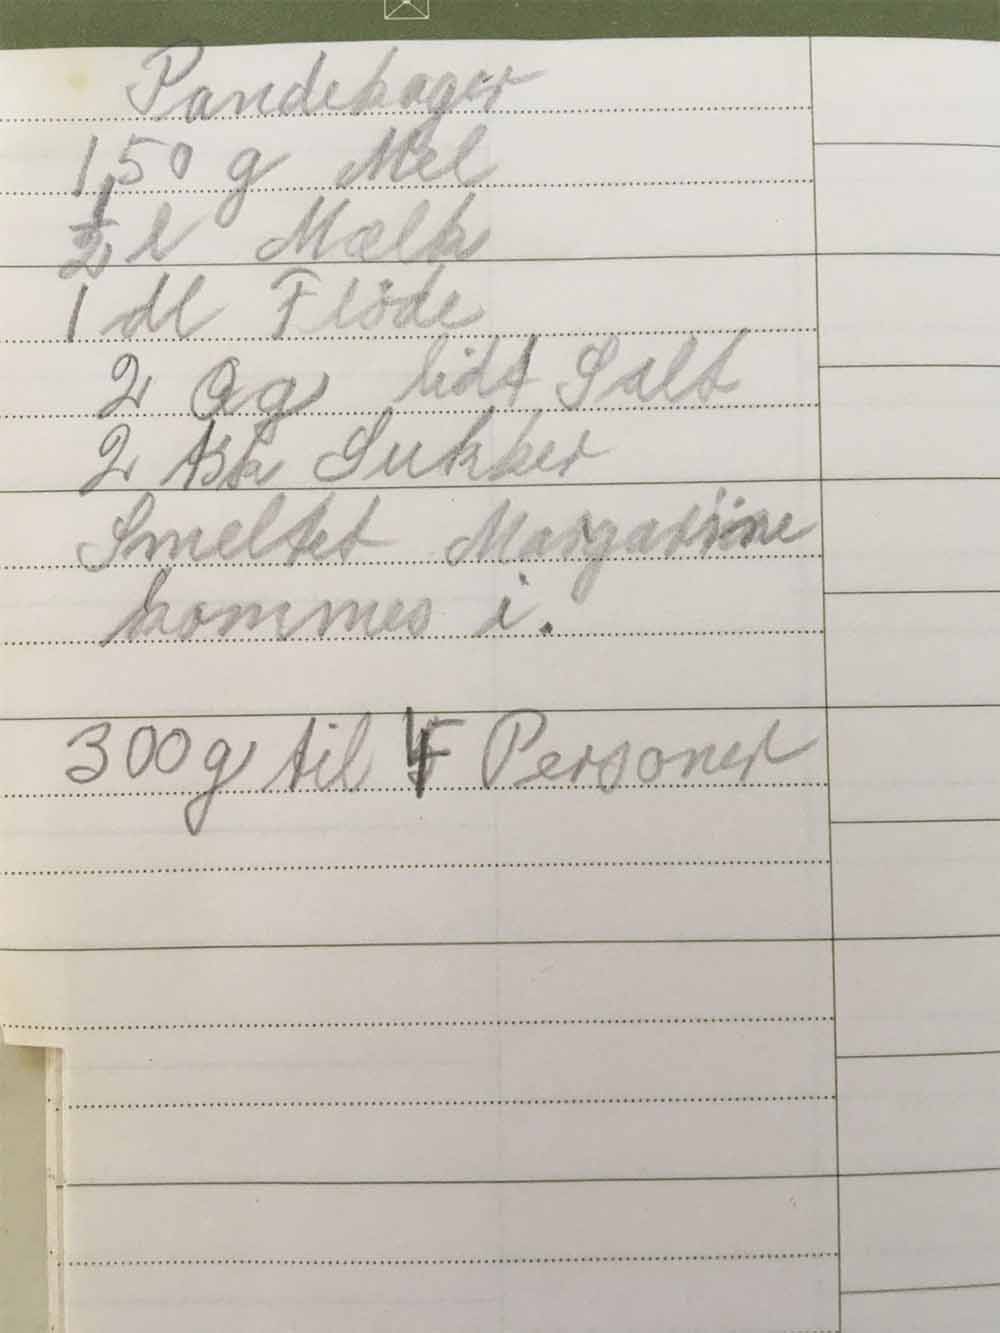 Pandekager
150 g Mel
1/2 l Mælk
1 dl Flöde
2 Æg lidt Salt
2 tsk Sukker
Smeltet Margarine
kommes i.
300g til 4 Personer